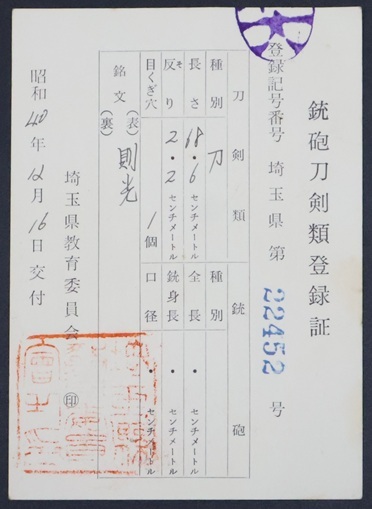 銃砲刀剣類登録証
登録記号番号 埼玉県 第 22452 号
刀剣類 銃砲
種別 刀 種別
長さ 68.6センチメートル 全長 ・センチメートル
反り 2.2センチメートル 銃身長 ・センチメートル
そ
目くぎ穴 1個 口径 ・センチメートル
銘文 (表) 則光
(裏)
埼玉県教育委員会 印
昭和40年12月16日交付